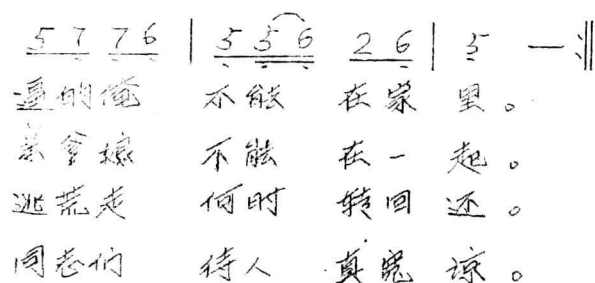 5 7 7 6 | 5 5 6 2 6 | 5 — :‖
逼的俺 不能 在家 里。
娘 不能 在一 起。
逃荒走 何时 转回 还。
同志们 待人 真 谅。